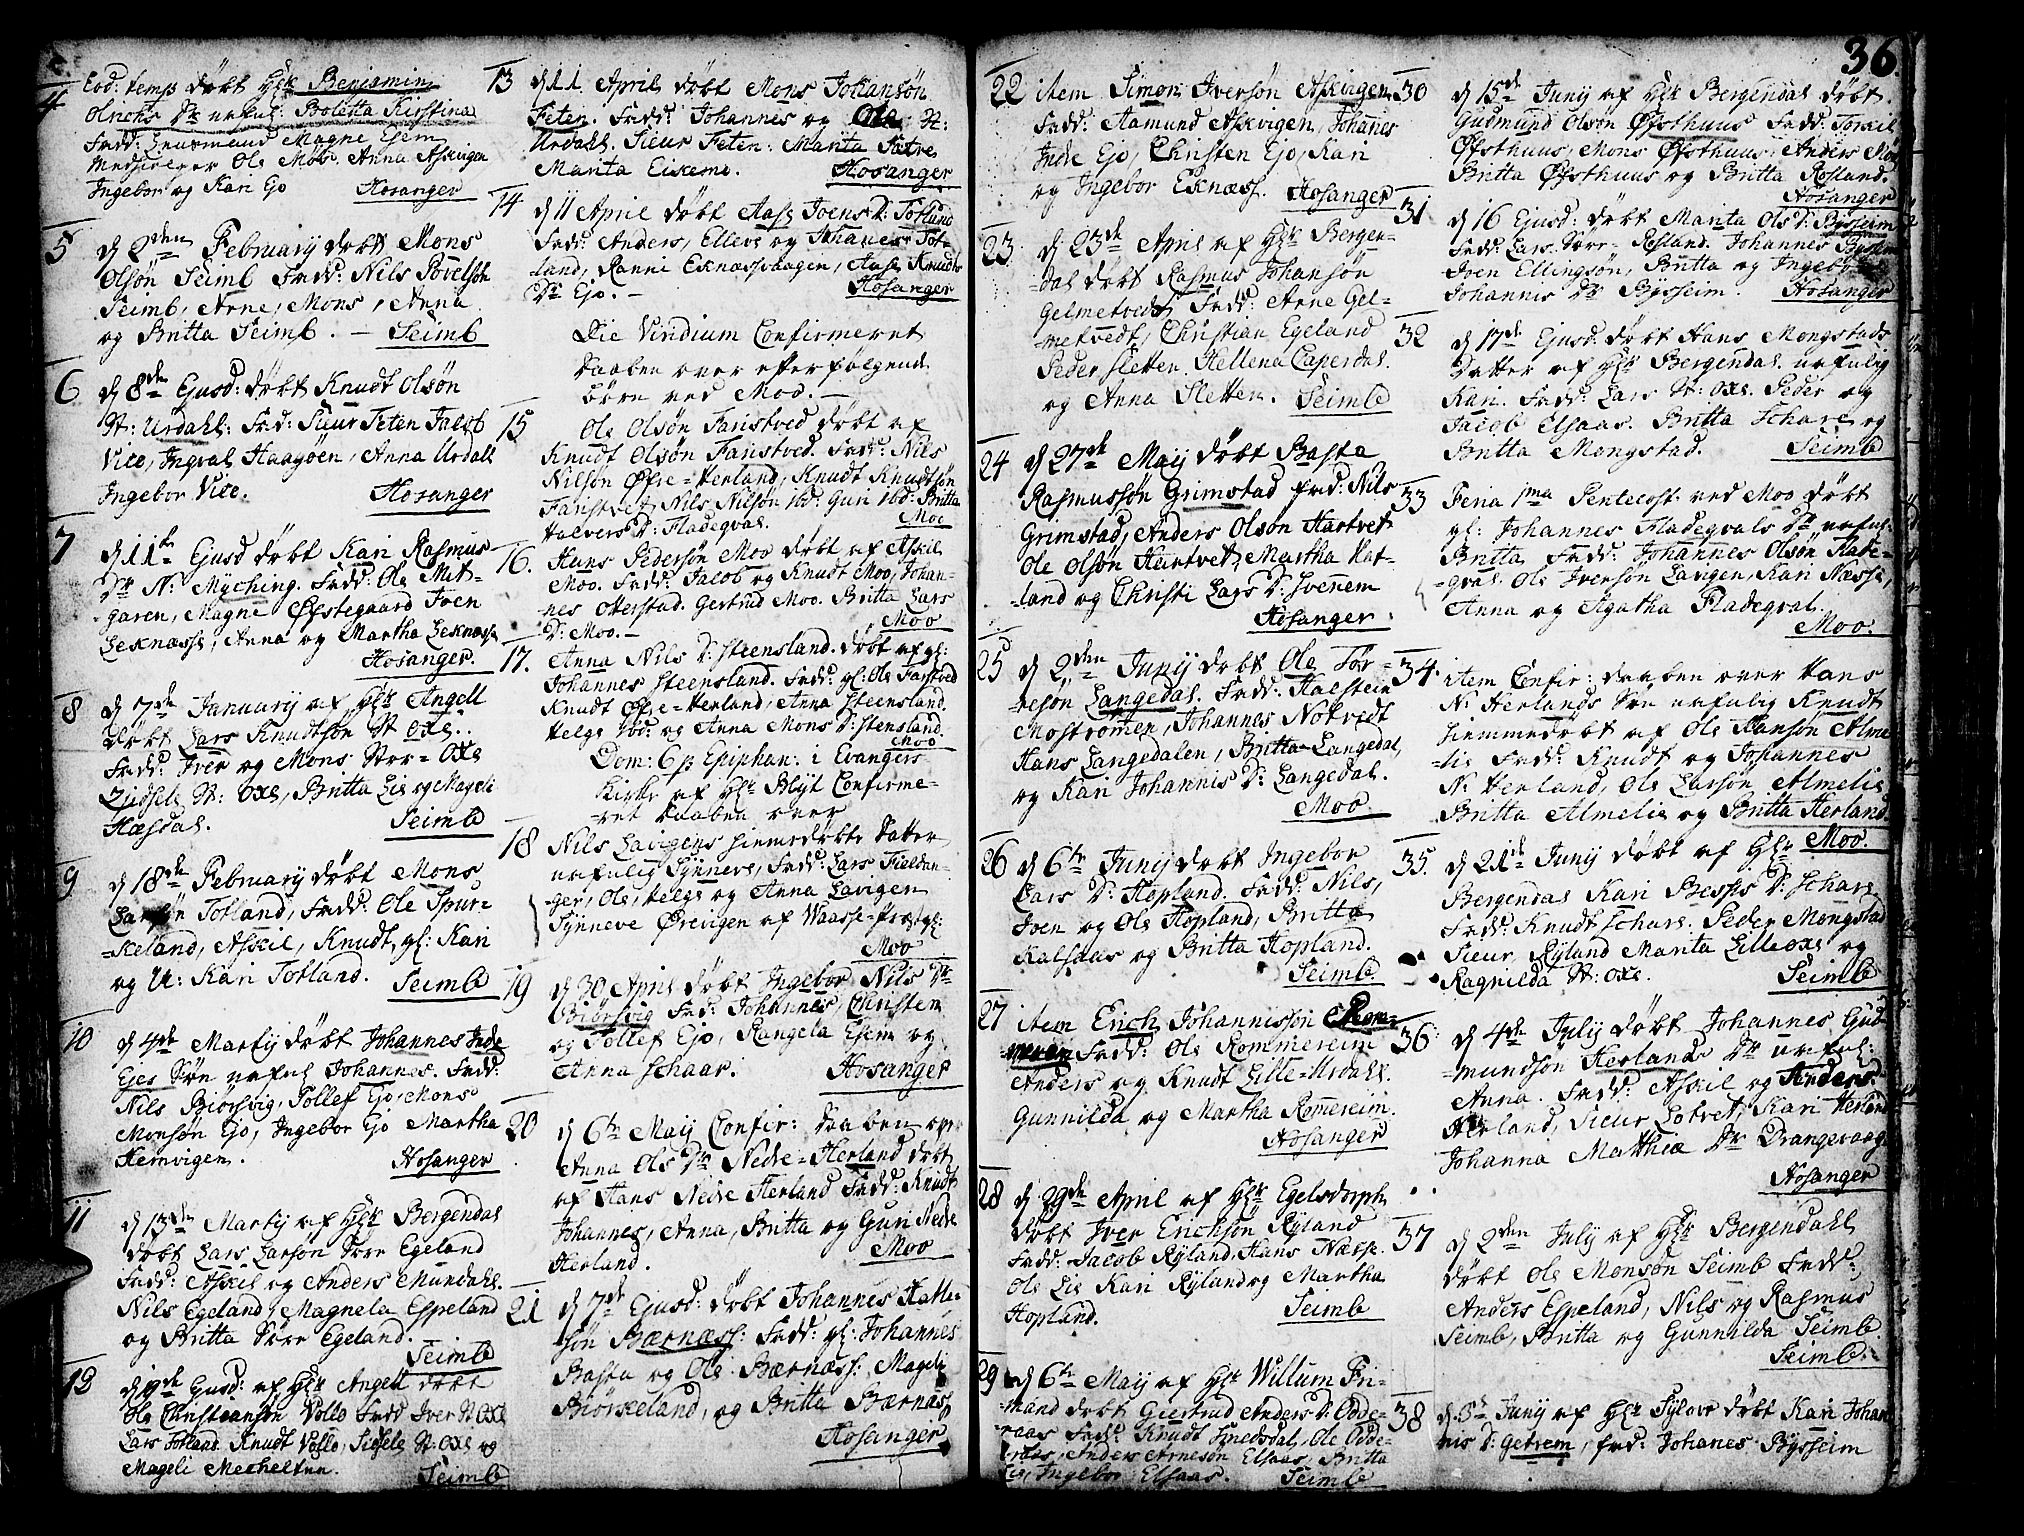 36.
4 Eod: temp døbt Hr Benjamin
Olrichs Dr nafnl: Boletta Kirstina
Fadd: Lensmand Magne Esem
Medhielper Ole Moe. Anna Askvigen
Ingebor og Kari Ejo Hosanger
5 d 2den February døbt Mons
Olsøn Seimb Fadd: Nils Povelsøn
Seimb, Arne, Mons, Anna
og Britta Seimb. – Seimb
6 d 8de Ejusd: døbt Knudt Olsøn
St: Urdahl: Fad: Siur Feten Jacob
Vico, Ingval Haagøen, Anna Urdall
Ingebor Vico. Hosanger
7 d 11te Ejusd døbt Kari Rasmus
Dr N: Myching. Fadd: Ole Mit-
garen, Magne Øfstegaard Joen
Leknæsse, Anna og Martha Leknæsse
Hosanger.
8 d 7de January af Hr Angell
døbt Lars Knudtsøn St Oxe.
Fadd: Iver og Mons Stor-Oxe
Zidsele St: Oxe, Britta Lie og Mageli
Hæsdal. Seimb
9 d 18de February døbt Mons
Larsøn Totland, Fadd: Ole Spur-
-keland, Askil, Knudt, gl: Kari
og U: Kari Totland. Seimb
10 d 4de Martij døbt Johannes Indre
Ejes Søn nafnl Johannes. Fadd:
Nils Biørsvig, Tollef Ejo, Mons
Monsøn Ejo, Ingebor Ejo Martha
Hemvigen. Hosanger
11 d 13de Martij af Hr Bergendal
døbt Lars Larsøn Sørr Egeland
Fadd: Askil og Anders Mundahl.
Nils Egeland, Magnela Espeland
og Britta Sørr Egeland.
Seimb
12 Ejusd: af Hr Angell døbt
Ole Christiansøn Vollo Fadd Iver St Oxe
Lars Totland. Knudt Vollo, Sidsele St: Oxe og
Mageli Mechelten. Seimb
13 d 11 April døbt Mons Johansøn
Feten. Fadd: Johannes og Ole St:
Urdahl. Siur Feten. Marita Sætre
Marita Eikemo. Hosanger
14 d 11 April døbt Aase Joens D: Totland
Fadd: Anders, Ellert og Johanes Tot-
land, Ranni Eknæssvaagen, Aase Knudts
Dr Ejo. – Hosanger
Die Viridium Confirmeret
Daaben over efterfølgende
børn ved Moo. –
15 Ole Olsøn Fanstved døbt af
Knudt Olsøn Fanstved. Fadd: Nils
Nilsøn Øfre-Herland, Knudt Knudtsøn
Fanstvet, Nils Nilsøn ibd: Guri ibd: Britta
Halvors D: Fladeqval. Moo
16. Hans Pedersøn Moo døbt af Askil
Moo. Fadd: Jacob og Knudt Moo, Johan-
-nes Otterstad. Gertrud Moo. Britta Lars
D: Moo. – Moo
17. Anna Nils D: Steensland. døbt af gl:
Johannes Steensland. Fadd: gl: Ole Fanstved
Knudt Øfre-Herland, Anna Steensland.
Helge ibd: og Anna Mons D: Stensland.
Moo
Dom: 6 p Epiphan: i Evangers
Kirke af Hr Blyt Confirme-
-ret Daaben over
18 Nils Lavigens hiemedøbte Datter
nafnlig Synneve, Fadd: Lars Fieldan-
ger, Ole, Helge og Anna Lavigen
Synneve Ørevigen af Waasse-Præstgl:
Moo
19 d 30 April døbt Ingebor Nils Dr
Biørsvig Fad: Johannes, Christen
og Tollef Ejo, Rangela Esem og
Anna Schaar. Hosanger
20 d 6te Maij Confir: Daaben over
Anna Ols Dr Nedre-Herland døbt
af Hans Nedre Herland Fadd: Knudt
Johannes, Anna, Britta og Guri Nedre
Herland. Moo
21 d 7de Ejusd: døbt Johannes Halle-
søn Bærnæss: Fadd: gl: Johannes
Basta og Ole Bærnæss: Mageli
Biørkeland, og Britta Bærnæss
Hosanger
22 item Simon Iversøn Askvigen
Fadd: Aamund Askvigen, Johanes
Indre Ejo, Christen Ejo, Kari
og Ingebor Eknæss. Hosanger
23. d 23de April af Hr Bergen-
dal døbt Rasmus Johansøn
Gelmetvedt, Fadd: Arne Gel-
-metvedt, Christian Egeland
Peder Sletten. Hellena Caperdal
og Anna Sletten. Seimb
24 d 27de Maij døbt Basta
Rasmussøn Grimstad Fad: Nils
Grimstad, Anders Olsøn Hartvet
Ole Olsøn Hartvet, Martha Hat-
-land og Christi Lars D: Svenem
Hosanger.
25 d 2den Junij døbt Ole Tør-
resøn Langedal. Fadd: Halstein
Mostrømen, Johannes Notvedt
Hans Langedalen, Britta Langedal,
og Kari Johannis D: Langedal.
Moo
26 d 6te Junij døbt Ingebor
Lars D: Hopland. Fadd: Nils,
Joen og Ole Hopland, Britta
Kalsaas og Britta Hopland.
Seimb
27 item Erich Johannissøn
Fadd: Ole Rommereim
Anders og Knudt Lille-Urdahl.
Gunnilda og Martha Romereim.
Hosanger
28 d 29de April af Hr Egelsdorph
døbt Iver Erichsøn Ryland
Fadd: Jacob Ryland, Hans Næsse.
Ole Lie Kari Ryland og Martha
Hopland. Seimb
29 d 6te Maij af Hr Willum Fri-
-mand døbt Giertrud Anders D: Odde-
-raas Fadd: Knudt Smedsdal, Ole Odde-
raas, Anders Arnesøn Elsaas, Britta
Lie, Ingebor Elsaas. Seimb
30 d 15de Junij af Hr Bergendal døbt.
Gudmund Olsøn Øfsthuus Fadd: Torkil
Øfsthuus, Mons Øfsthuus, Anders
Britta Øfsthuus og Britta Rosland.
Hosanger
31 d 16 Ejusd: døbt Marita Ols D: Bysseim
Fadd: Lars Sørr-Rosland. Johannes Bysseim
Joen Ellingsøn, Britta og Ingebor
Johannis Dr Bysseim. Hosanger
32 d 17de Ejusd døbt Hans Mongstads
Datter af Hr Bergendal nafnlig
Kari. Fadd: Lars St: Oxe. Peder og
Jacob Elsaas. Britta Schare og
Britta Mongstad. Seimb
33 Feria 1ma Pentecost: ved Moo døbt
gl: Johannes Fladeqvals Dr nafnl:
Britta Fadd: Johannes Olsøn Flade-
-qval. Ole Iversøn Lavigen, Kari Næsse,
Anna og Agatha Fladeqval.
Moo.
34. item Confir: Daaben over Hans
N: Herlands Søn nafnlig Knudt
hiemmedøbt af Ole Hansøn Alme-
-lie Fadd: Knudt og Johannes
N: Herland, Ole Larsøn Almelie
Britta Almelie og Britta Herland.
Moo.
35. d 21de Junij døbt af Hr
Bergendal Kari Besses D: Schare
Fadd: Knudt Schare. Peder Mongstad
Sieur Ryland Marita Lille Oxe og
Ragnilda St: Oxe. Seimb
36. d 4de July døbt Johannes Gud-
-mundsøn Herlands Dr nafnl:
Anna. Fadd: Askil og Anders
Herland, Sieur Lotvet, Kari Herland
Johanna Matthiæ Dr Drangevaag
Hosanger
37 d 2den July af Hr Bergendahl
døbt Ole Monsøn Seimb Fadd:
Anders Espeland, Nils og Rasmus
Seimb, Britta og Gunnilda Seimb.
Seimb.
38 d Junij af Hr Sylove døbt Kari Johan
nis D: Getrem, Fad: Johanes Bysseim